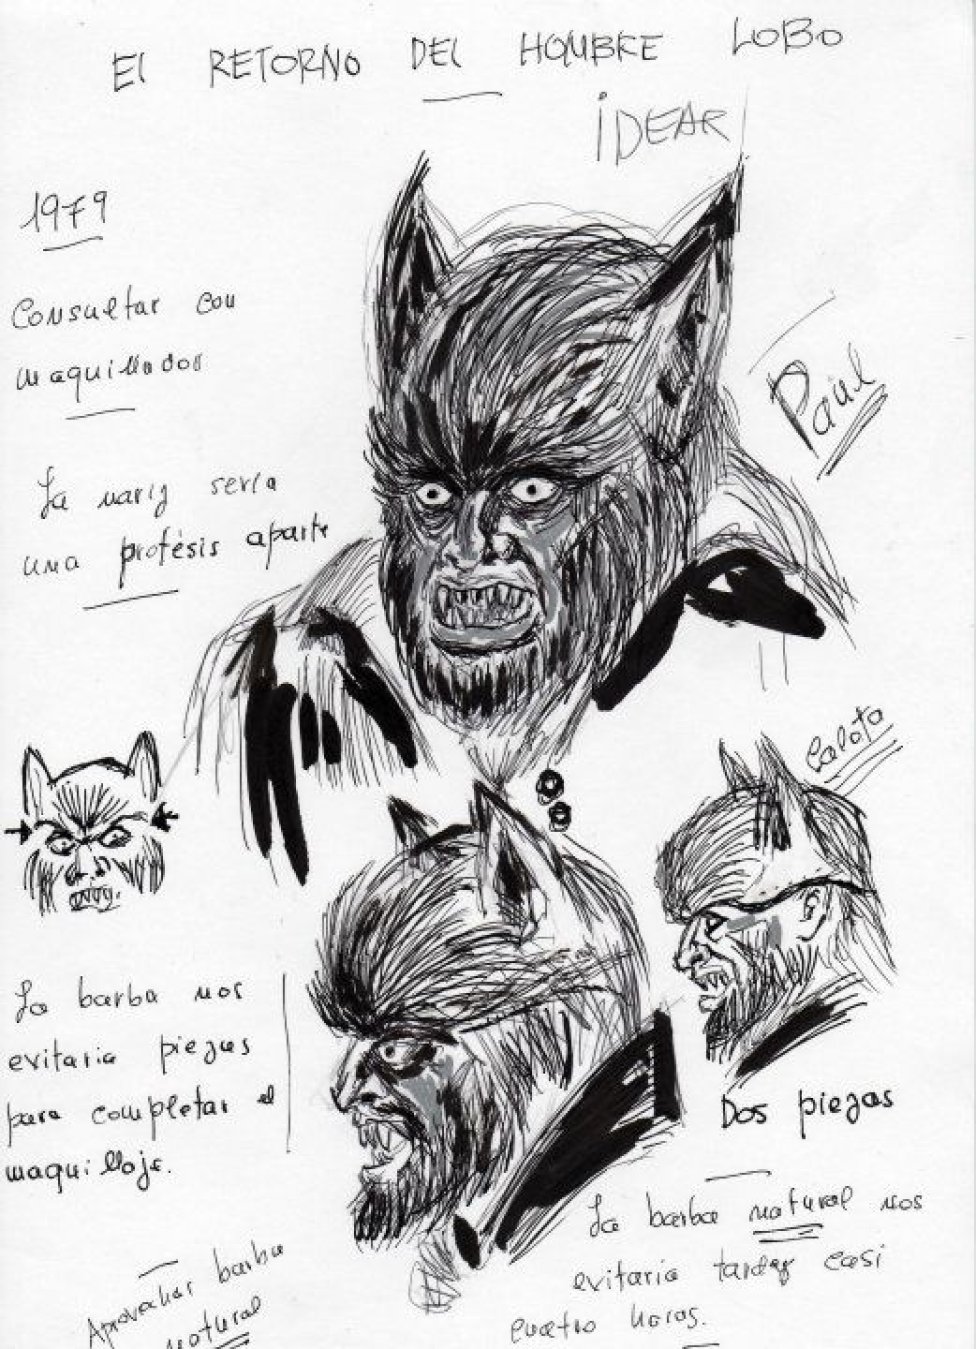 El RETORNO DEL HOMBRE LOBO
iDEAR
1979
Consultar con
maquillador
Paul
La nariz sería
una protésis aparte
Calota
La barba nos
evitaria piezas
para completar el
maquillaje.
Dos piezas
La barba natural nos
evitaria tardar casi
cuatro horas.
Aprovechar barba
natural